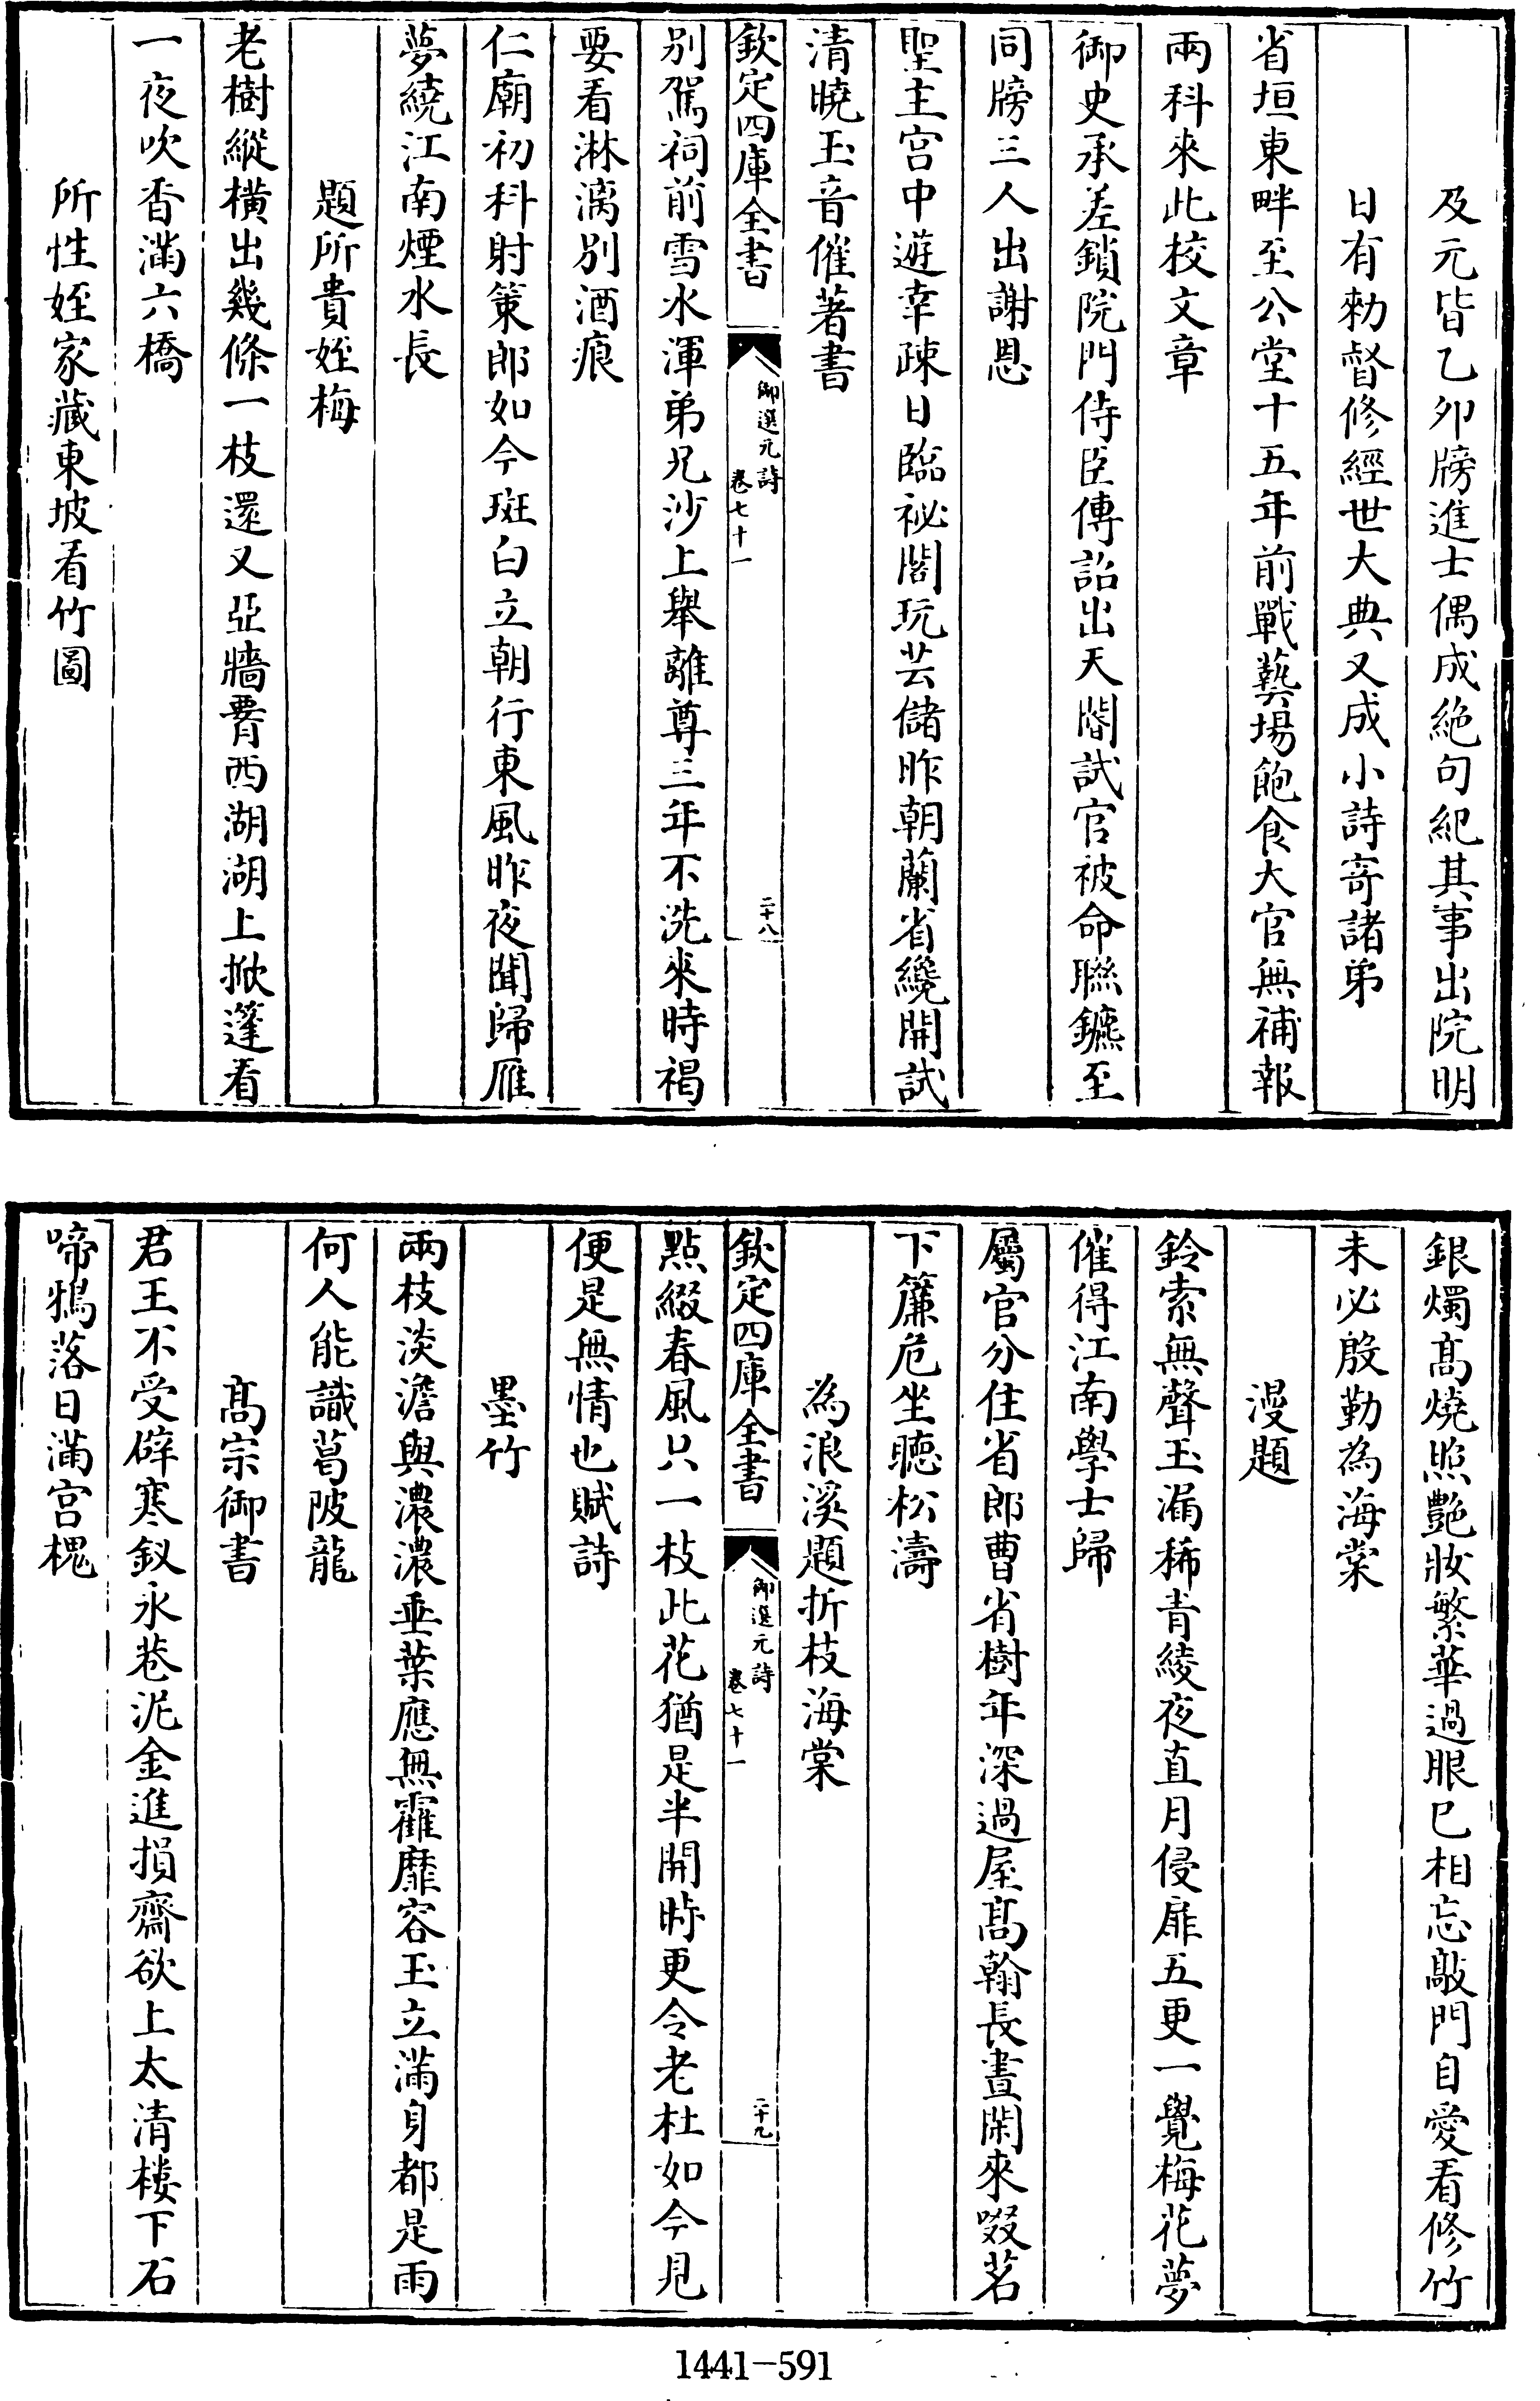 及元皆乙夘牓進士偶成絶句紀其事出院明
日有勅督修經世大典又成小詩寄諸弟
省垣東畔至公堂十五年前戰藝場飽食大官無補報
兩科來此校文章
御史承差鎖院門侍臣傳詔出天閽試官被命聯鑣至
同牓三人出謝恩
聖主宫中遊幸疎日臨祕閣玩芸儲昨朝蘭省纔開試
清曉玉音催著書
欽定四庫全書
御選元詩
卷七十一
二十八
别駕祠前雪水渾弟兄沙上舉離尊三年不洗來時褐
要看淋漓别酒痕
仁廟初科射策郎如今斑白立朝行東風昨夜聞歸雁
夢繞江南煙水長
題所貴姪梅
老樹縱横出幾條一枝還又亞牆腰西湖湖上掀篷看
一夜吹香滿六橋
所性姪家藏東坡看竹圖
銀燭髙燒照艷妝繁華過眼已相忘敲門自愛看修竹
未必殷勤為海棠
漫題
鈴索無聲玉漏稀青綾夜直月侵扉五更一覺梅花夢
催得江南學士歸
屬官分住省郎曹省樹年深過屋髙翰長晝閑來啜茗
下簾危坐聽松濤
為浪溪題折枝海棠
欽定四庫全書
御選元詩
卷七十一
二十九
點綴春風只一枝此花猶是半開時更令老杜如今見
便是無情也賦詩
墨竹
兩枝淡澹與濃濃垂葉應無靃靡容玉立滿身都是雨
何人能識葛陂龍
髙宗御書
君王不受辟寒釵永巷泥金進損齋欲上太清樓下石
啼鴉落日滿宫槐
1441-591